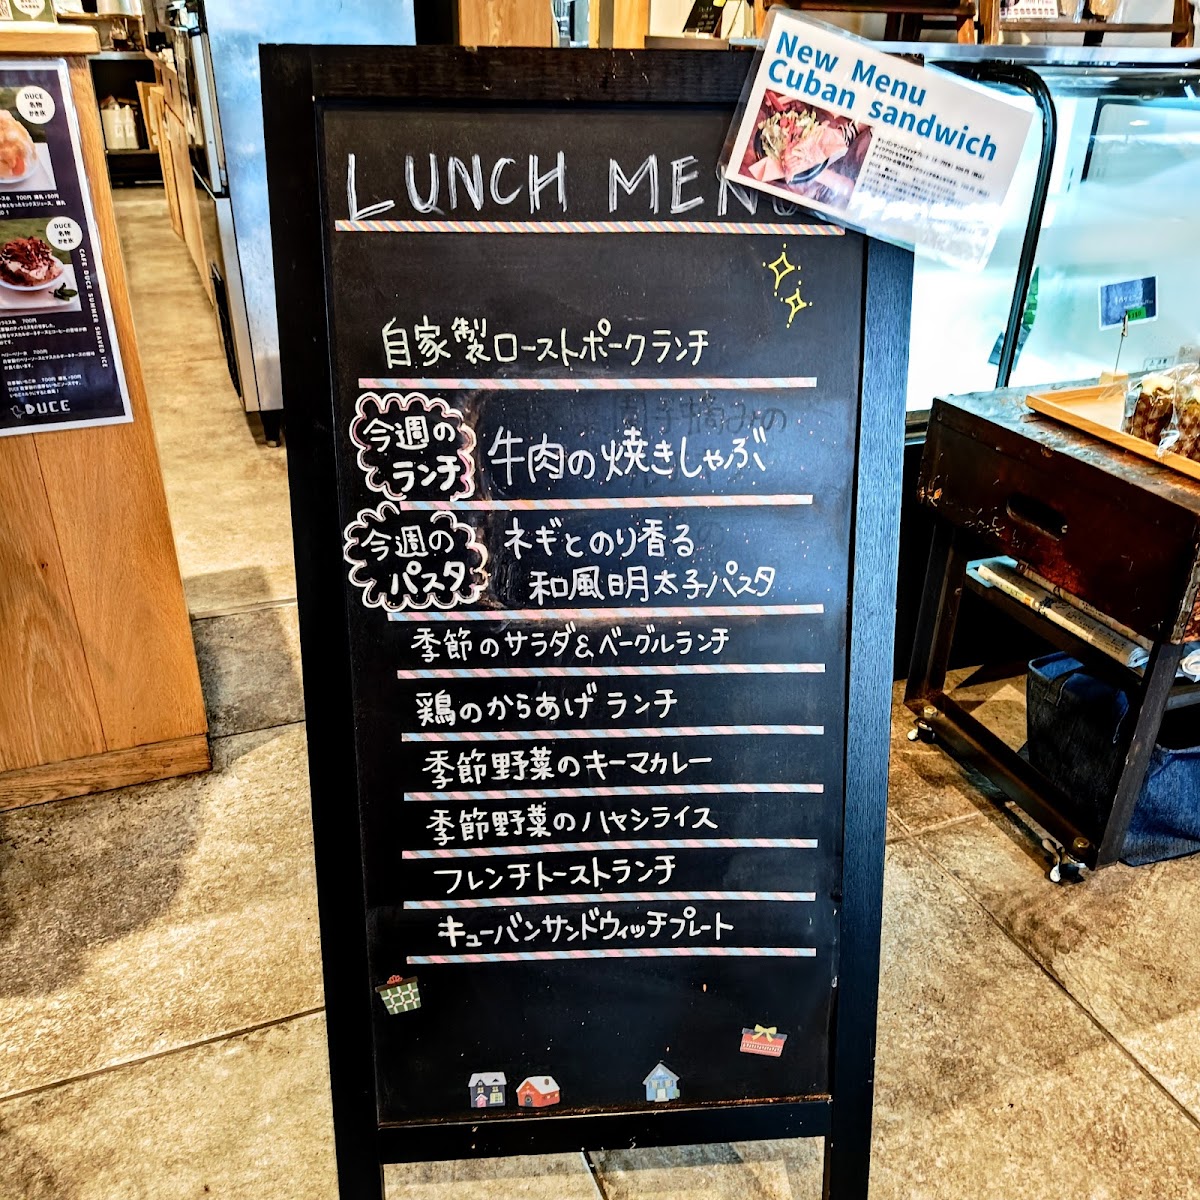 LUNCH MENU
New Menu
Cuban sandwich
自家製ローストポークランチ
今週の
ランチ
牛肉の焼きしゃぶ
今週の
パスタ
ネギとのり香る
和風明太子パスタ
季節のサラダ&ベーグルランチ
鶏のからあげランチ
季節野菜のキーマカレー
季節野菜のハヤシライス
フレンチトーストランチ
キューバンサンドウィッチプレート
DUCE
名物
かき氷
DUCE
名物
かき氷
CAFE DUCE SUMMER SHAVED ICE
DUCE